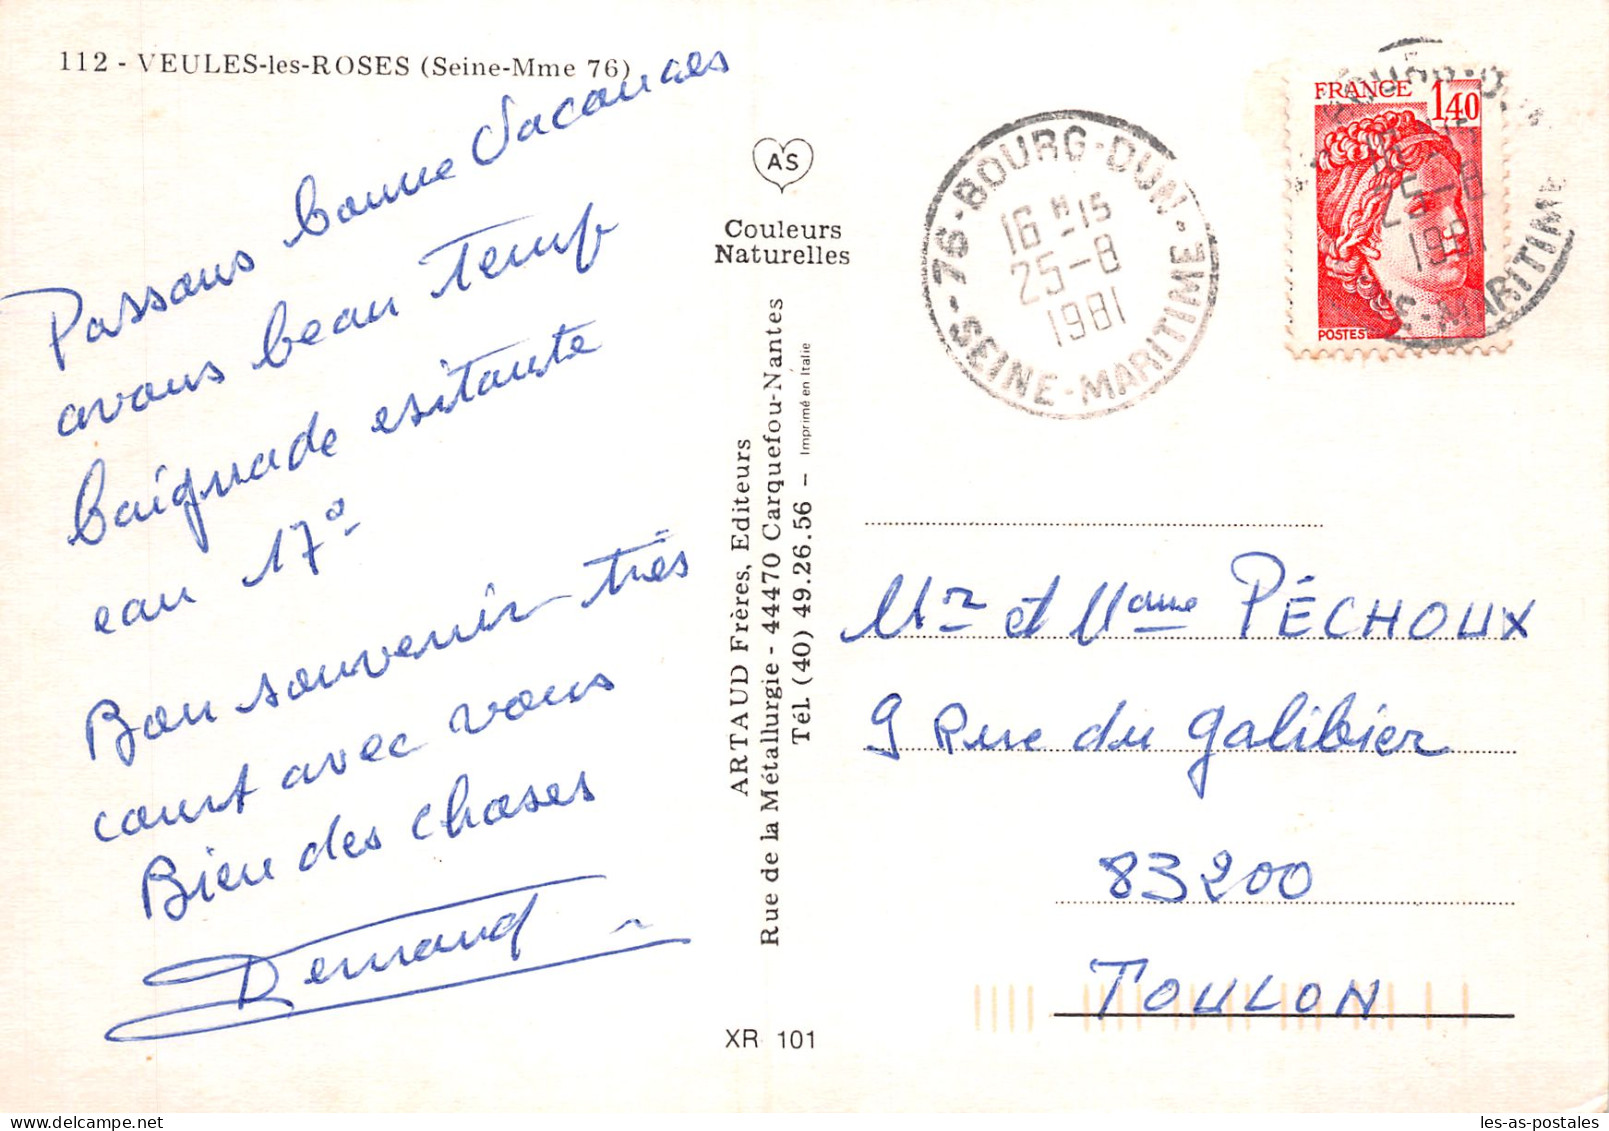 112 - VEULES-les-ROSES (Seine-Mme 76)
Passons bonne vacances
avons beau temps
baignade esitante
eau 17°
Bon souvenir très
court avec vous
Bien des choses
AS
Couleurs
Naturelles
ARTAUD Frères, Editeurs
Rue de la Métallurgie - 44470 Carquefou-Nantes
Tél. (40) 49.26.56 – Imprimé en Italie
XR 101
76-BOURG-DUN-
SEINE-MARITIME
16 H-15
25-8
1981
FRANCE 1,40
POSTES
25-8
1981
E-MARITIME
Mr et Mame PÉCHOUX
9 Rue du galibier
83200
TOULON
les-as-postales